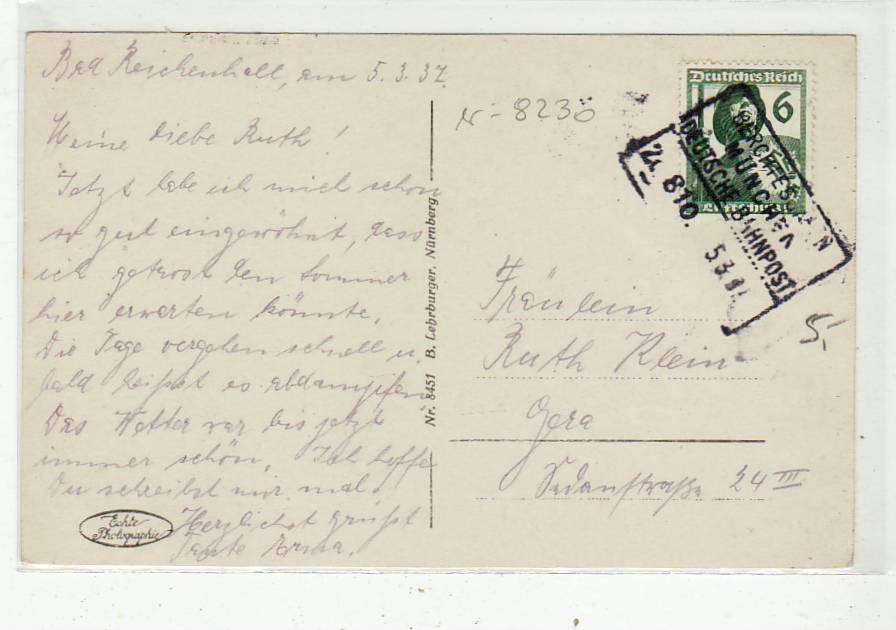 Bad Reichenhall, am 5.3.37.
Meine liebe Ruth!
Jetzt habe ich mich schon
so gut eingewöhnt, dass
ich getrost den Sommer
hier erwarten könnte.
Die Tage vergehen schnell u.
bald heißt es abdampfen.
Das Wetter war bis jetzt
immer schön. Ich hoffe
Du schreibst mir mal.
Herzlichst grüßt
Tante Erna.
Echte
Photographie
Nr. 8451 B. Lehrburger, Nürnberg
N-8230
Deutsches Reich
6
Luftschutz
BERCHTESGADEN
MÜNCHEN
DEUTSCHE BAHNPOST
Z. 810.
5.3.37
5.-
Fräulein
Ruth Klein
Gera
Sedanstraße 24 III